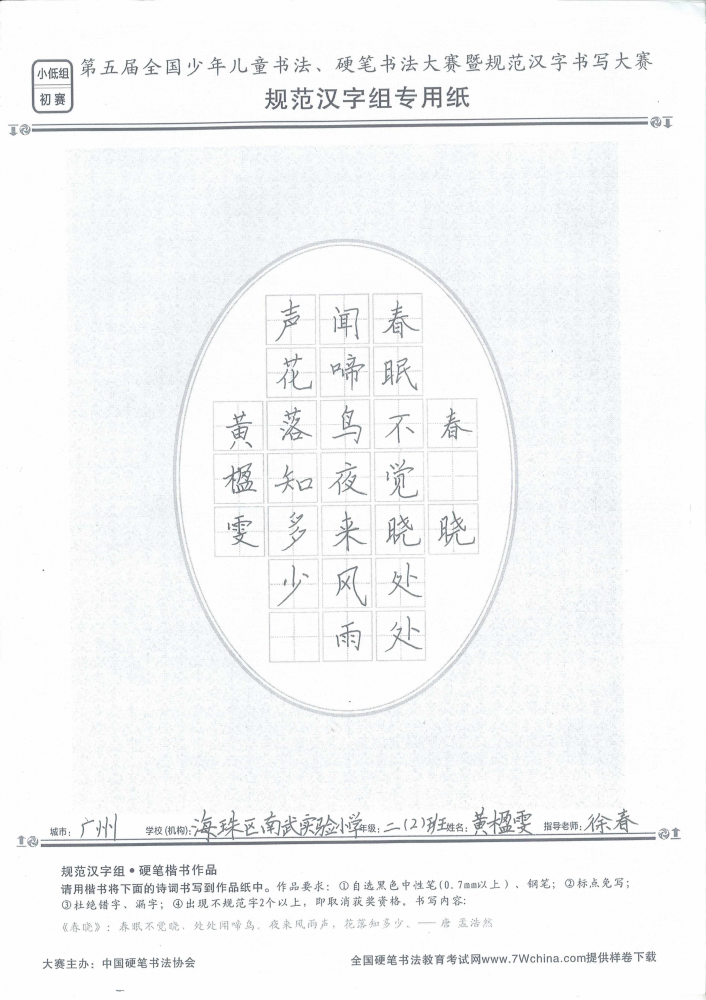 小低组
初赛
第五届全国少年儿童书法、硬笔书法大赛暨规范汉字书写大赛
规范汉字组专用纸
春晓
春眠不觉晓处处
闻啼鸟夜来风雨
声花落知多少
黄楹雯
城市：广州 学校(机构)：海珠区南武实验小学 年级：二(2)班 姓名：黄楹雯 指导老师：徐春
规范汉字组•硬笔楷书作品
请用楷书将下面的诗词书写到作品纸中。作品要求：①自选黑色中性笔(0.7mm以上)、钢笔；②标点免写；
③杜绝错字、漏字；④出现不规范字2个以上，即取消获奖资格。书写内容：
《春晓》：春眠不觉晓，处处闻啼鸟。夜来风雨声，花落知多少。——唐 孟浩然
大赛主办：中国硬笔书法协会
全国硬笔书法教育考试网www.7Wchina.com提供样卷下载